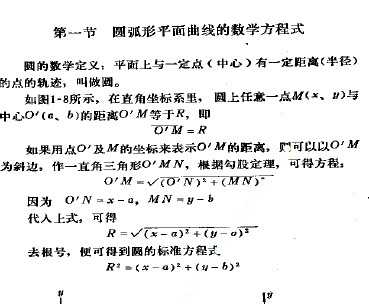 第一节 圆弧形平面曲线的数学方程式
圆的数学定义：平面上与一定点（中心）有一定距离(半径)
的点的轨迹，叫做圆。
如图1-8所示，在直角坐标系里，圆上任意一点M(x、y)与
中心O′(a、b)的距离O′M等于R，即
O′M=R
如果用点O′及M的坐标来表示O′M的距离，则可以以O′M
为斜边，作一直角三角形O′MN，根据勾股定理，可得方程：
O′M=√(O′N)²+(MN)²
因为 O′N=x-a，MN=y-b
代入上式，可得
R=√(x-a)²+(y-a)²
去根号，便可得到圆的标准方程式
R²=(x-a)²+(y-b)²
y y